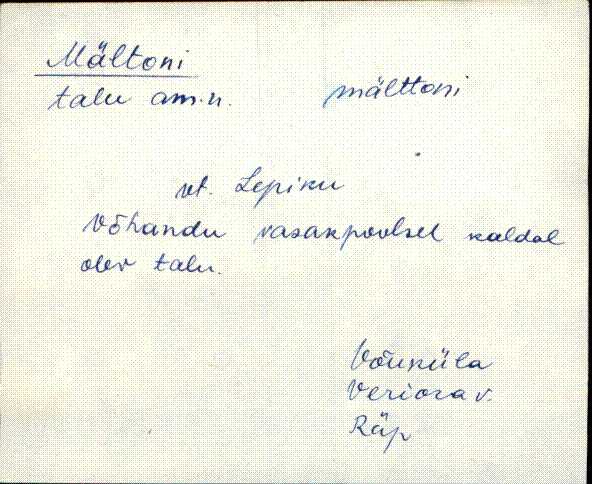 Mältoni
talu am.n. mälttoni
vt. Lepiku
Võhandu vasakpoolsel kaldal
olev talu.
Võuküla
Veriora v.
Räp